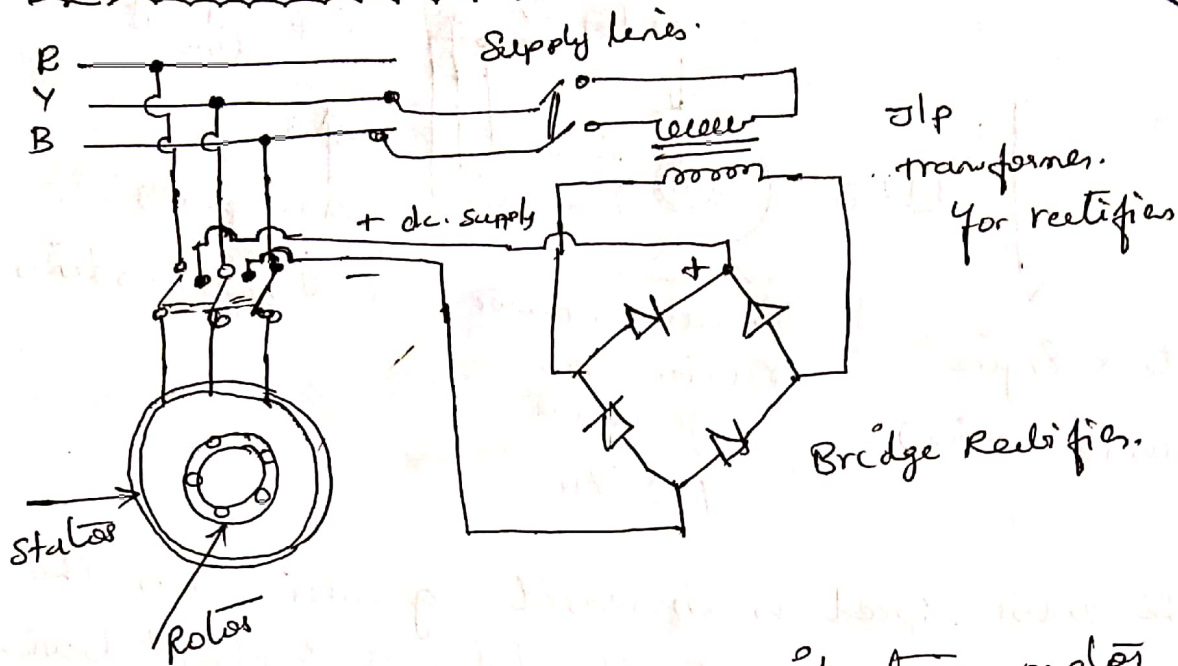 R
Supply lines.
Y
B
I/p
transformer.
for rectifier
+ dc. supply
+
−
Bridge Rectifier.
Stator
Rotor
motor